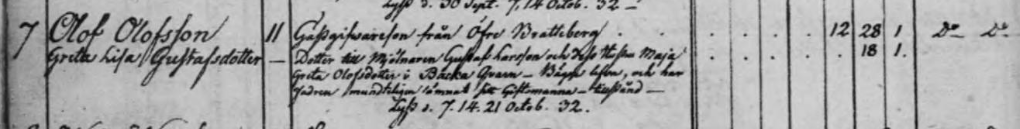 Lyst d. 30 Sept. 7, 14 Octob. 32 —
7 Olof Olofsson 11 Gästgifvareson från Öfre Bratteberg. 12 28 1 Do Do
Greta Lisa Gustafsdotter — Dotter till Mjölnaren Gustaf Larsson och dess Hustru Maja 18 1.
Greta Olofsdotter i Backa Qvarn — Bägge lefva, och har
Fadren mundteligen lämnat sitt Giftomanna-tillstånd —
Lyst d. 7. 14. 21 Octob. 32.